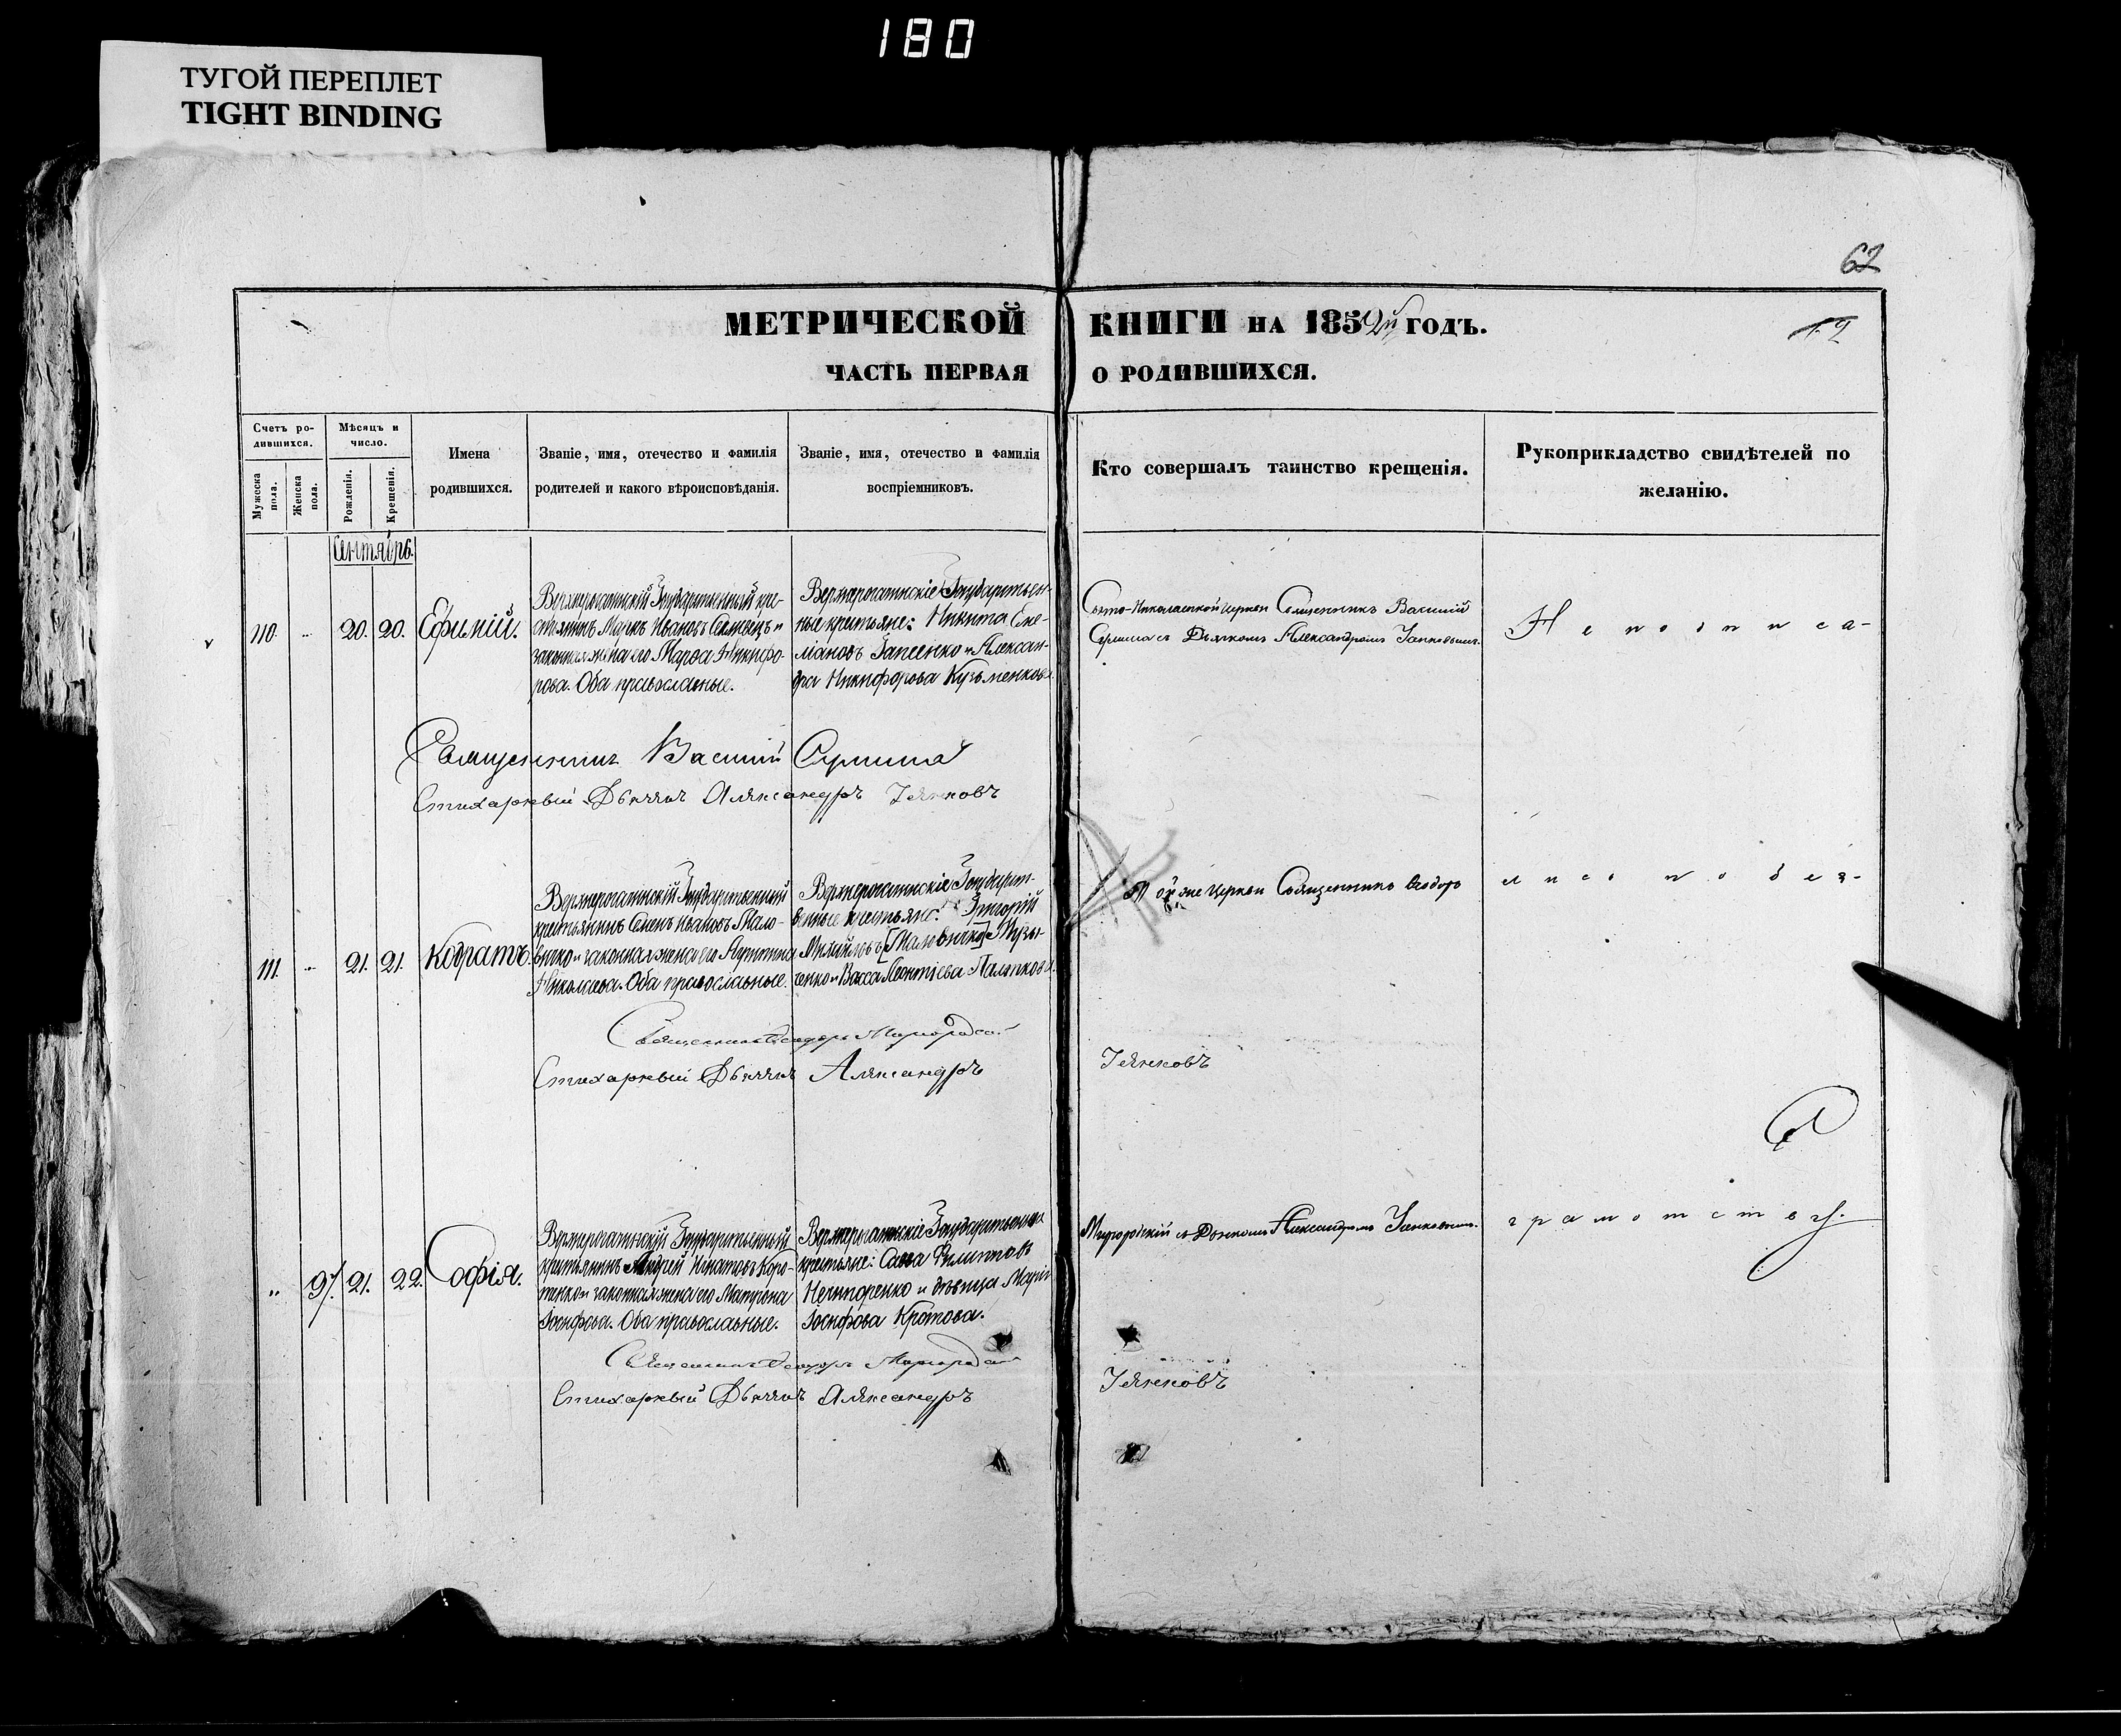 180
ТУГОЙ ПЕРЕПЛЕТ
TIGHT BINDING
62
МЕТРИЧЕСКОЙ КНИГИ НА 1852й ГОДЪ.
ЧАСТЬ ПЕРВАЯ О РОДИВШИХСЯ.
Счетъ ро-
дившихся.
Мужеска пола.
Женска пола.
Мѣсяцъ и
число.
Рожденія.
Крещенія.
Имена
родившихся.
Званіе, имя, отечество и фамилія
родителей и какого вѣроисповѣданія.
Званіе, имя, отечество и фамилія
воспріемниковъ.
Кто совершалъ таинство крещенія.
Рукоприкладство свидѣтелей по
желанію.
Сентябрь.
110. „ 20. 20. Ефимій.
Государственный кре-
стьянинъ Маркъ Ивановъ и
законная жена его Марфа Никифо-
рова. Оба православные.
Государствен-
ные крестьяне: Никита
и Алексан-
дра Никифорова Кузьменкова
Свято-Николаевской церкви Священникъ Василій
съ Дьячкомъ Александромъ
Не подписа-
Священникъ Василій
Стихарный Дьячекъ Александръ
111. „ 21. 21. Кодратъ.
Государственный
крестьянинъ Семенъ Ивановъ Мало-
вичко и законная жена его
Николаева. Оба православные.
Государст-
венные крестьяне: Григорій
Михайловъ [Маловичко]
и Васса Леонтіева
Той же церкви Священникъ Ѳеодоръ
лись по без-
Священникъ Ѳеодоръ Миргородскій
Стихарный Дьячекъ Александръ
„ 97. 21. 22. Софія.
Государственный
крестьянинъ Андрей Игнатовъ Коро-
тенко и законная жена его Матрона
Іосифова. Оба православные.
Государственные
крестьяне: Сава Филипповъ
Нечипоренко и дѣвица Марія
Іосифова Кротова.
Миргородскій съ Дьячкомъ Александромъ
грамотству.
Священникъ Ѳеодоръ Миргородскій
Стихарный Дьячекъ Александръ